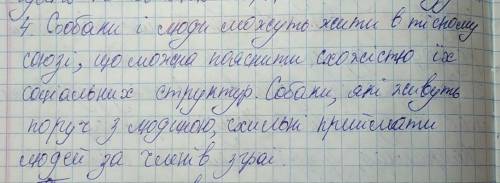 4. Собаки і люди можуть жити в тісному
союзі, що можна пояснити схожістю їх
соціальних структур. Собаки, які живуть
поруч з людиною, схильні приймати
людей за членів зграї.